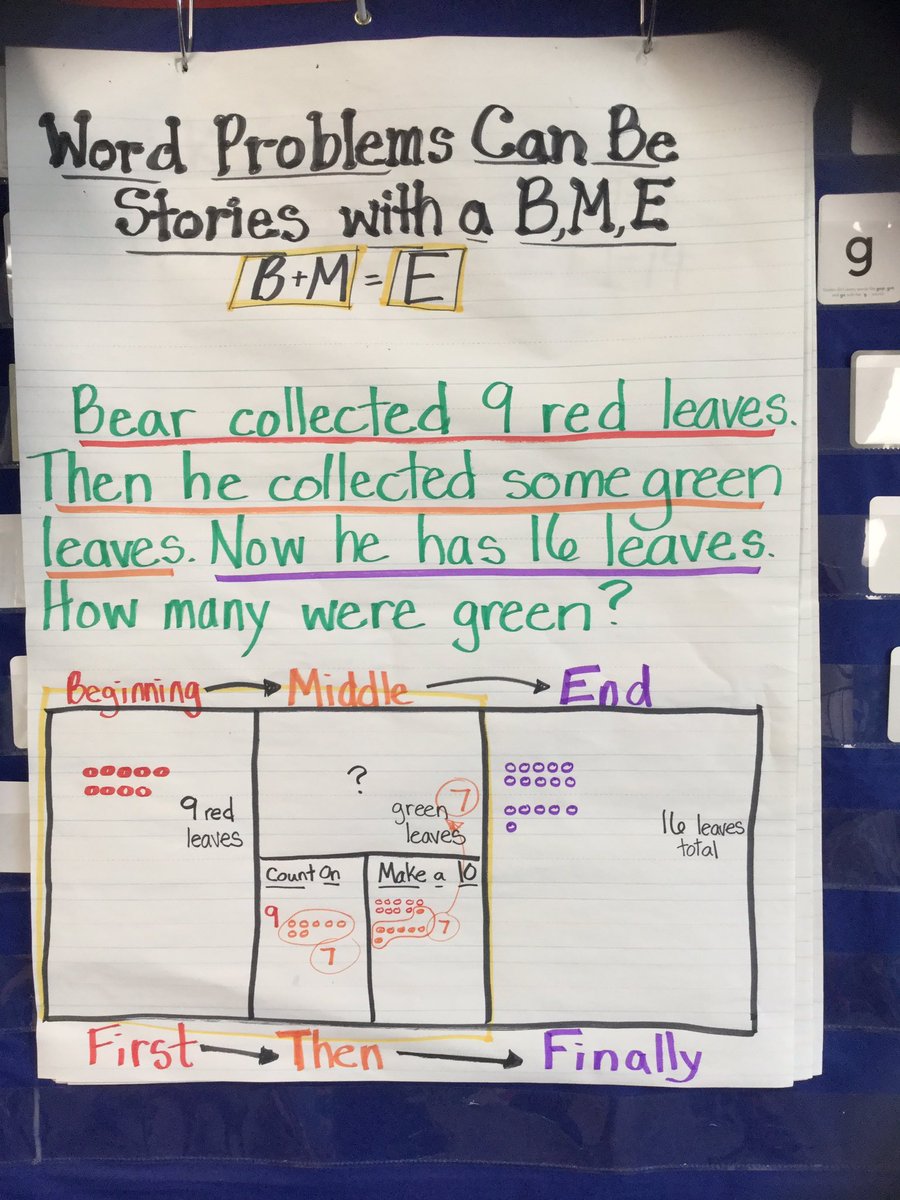 Word Problems Can Be
Stories with a B,M,E
B+M = E
g
Bear collected 9 red leaves.
Then he collected some green
leaves. Now he has 16 leaves.
How many were green?
Beginning Middle End
?
7
green
leaves
9 red
leaves
16 leaves
total
Count On
9
7
Make a 10
7
First Then Finally